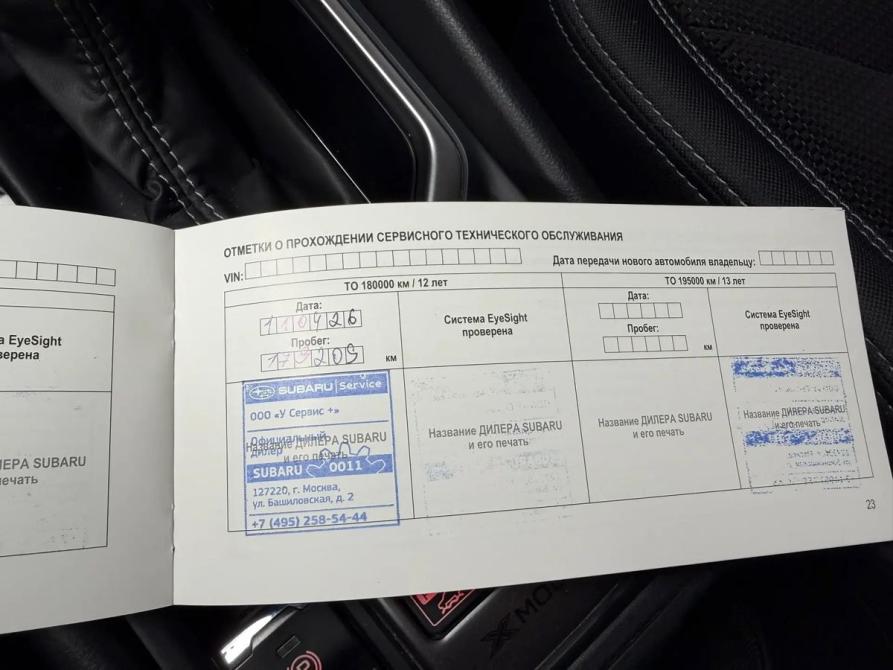 ОТМЕТКИ О ПРОХОЖДЕНИИ СЕРВИСНОГО ТЕХНИЧЕСКОГО ОБСЛУЖИВАНИЯ
VIN:
Дата передачи нового автомобиля владельцу:
ТО 180000 км / 12 лет
ТО 195000 км / 13 лет
Дата:
110426
Пробег:
179209 км
Система EyeSight
проверена
Дата:
Пробег:
км
Система EyeSight
проверена
SUBARU Service
ООО «У Сервис +»
Официальный
дилер
Название ДИЛЕРА SUBARU
и его печать
SUBARU 0011
127220, г. Москва,
ул. Башиловская, д. 2
+7 (495) 258-54-44
Название ДИЛЕРА SUBARU
и его печать
Название ДИЛЕРА SUBARU
и его печать
Название ДИЛЕРА SUBARU
и его печать
23
EyeSight
SUBARU
X MO